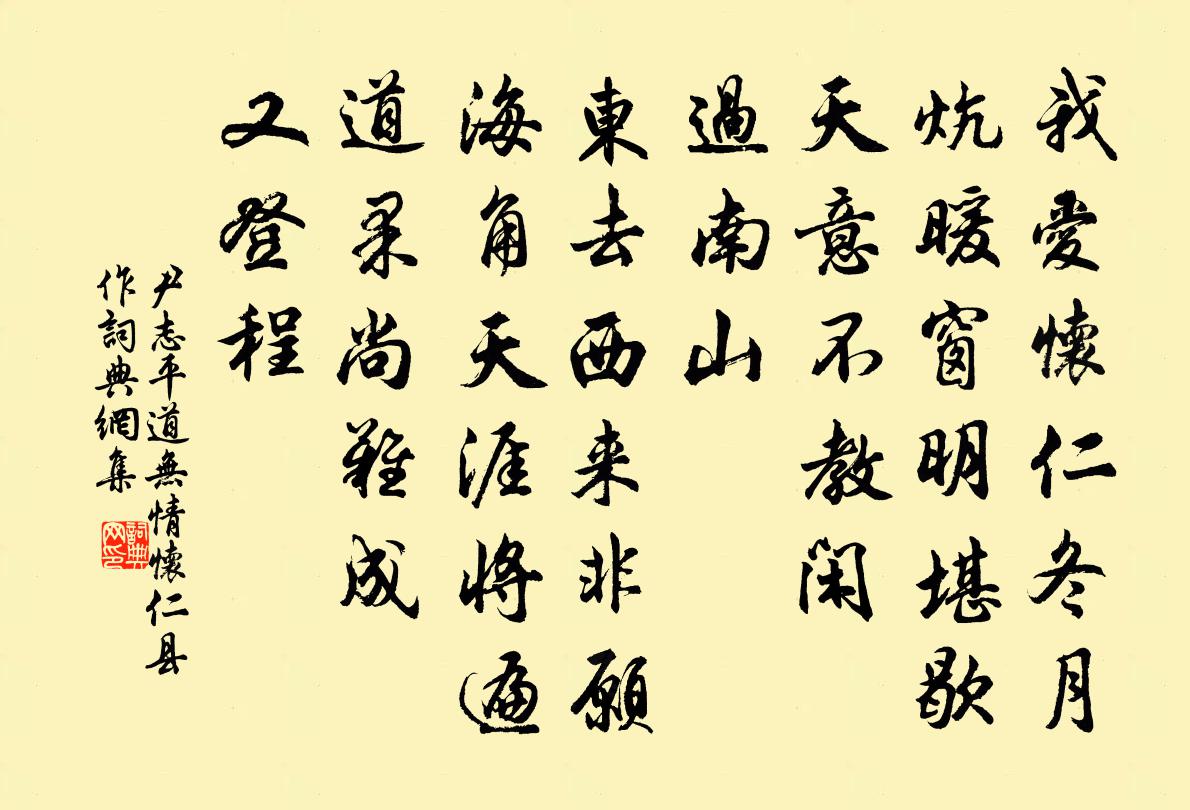 我愛懷仁冬月
炕暖窗明堪歇
天意不教閑
過南山
東去西来非願
海角天涯將遍
道果尚難成
又登程
尹志平道無情懷仁县
作詞典網集
詞典
网印